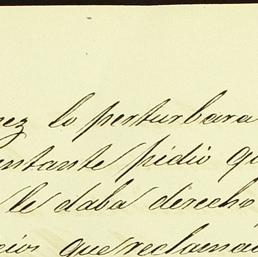 nez lo perturbara
entante pidio qu
le daba derecho
cios que reclamac